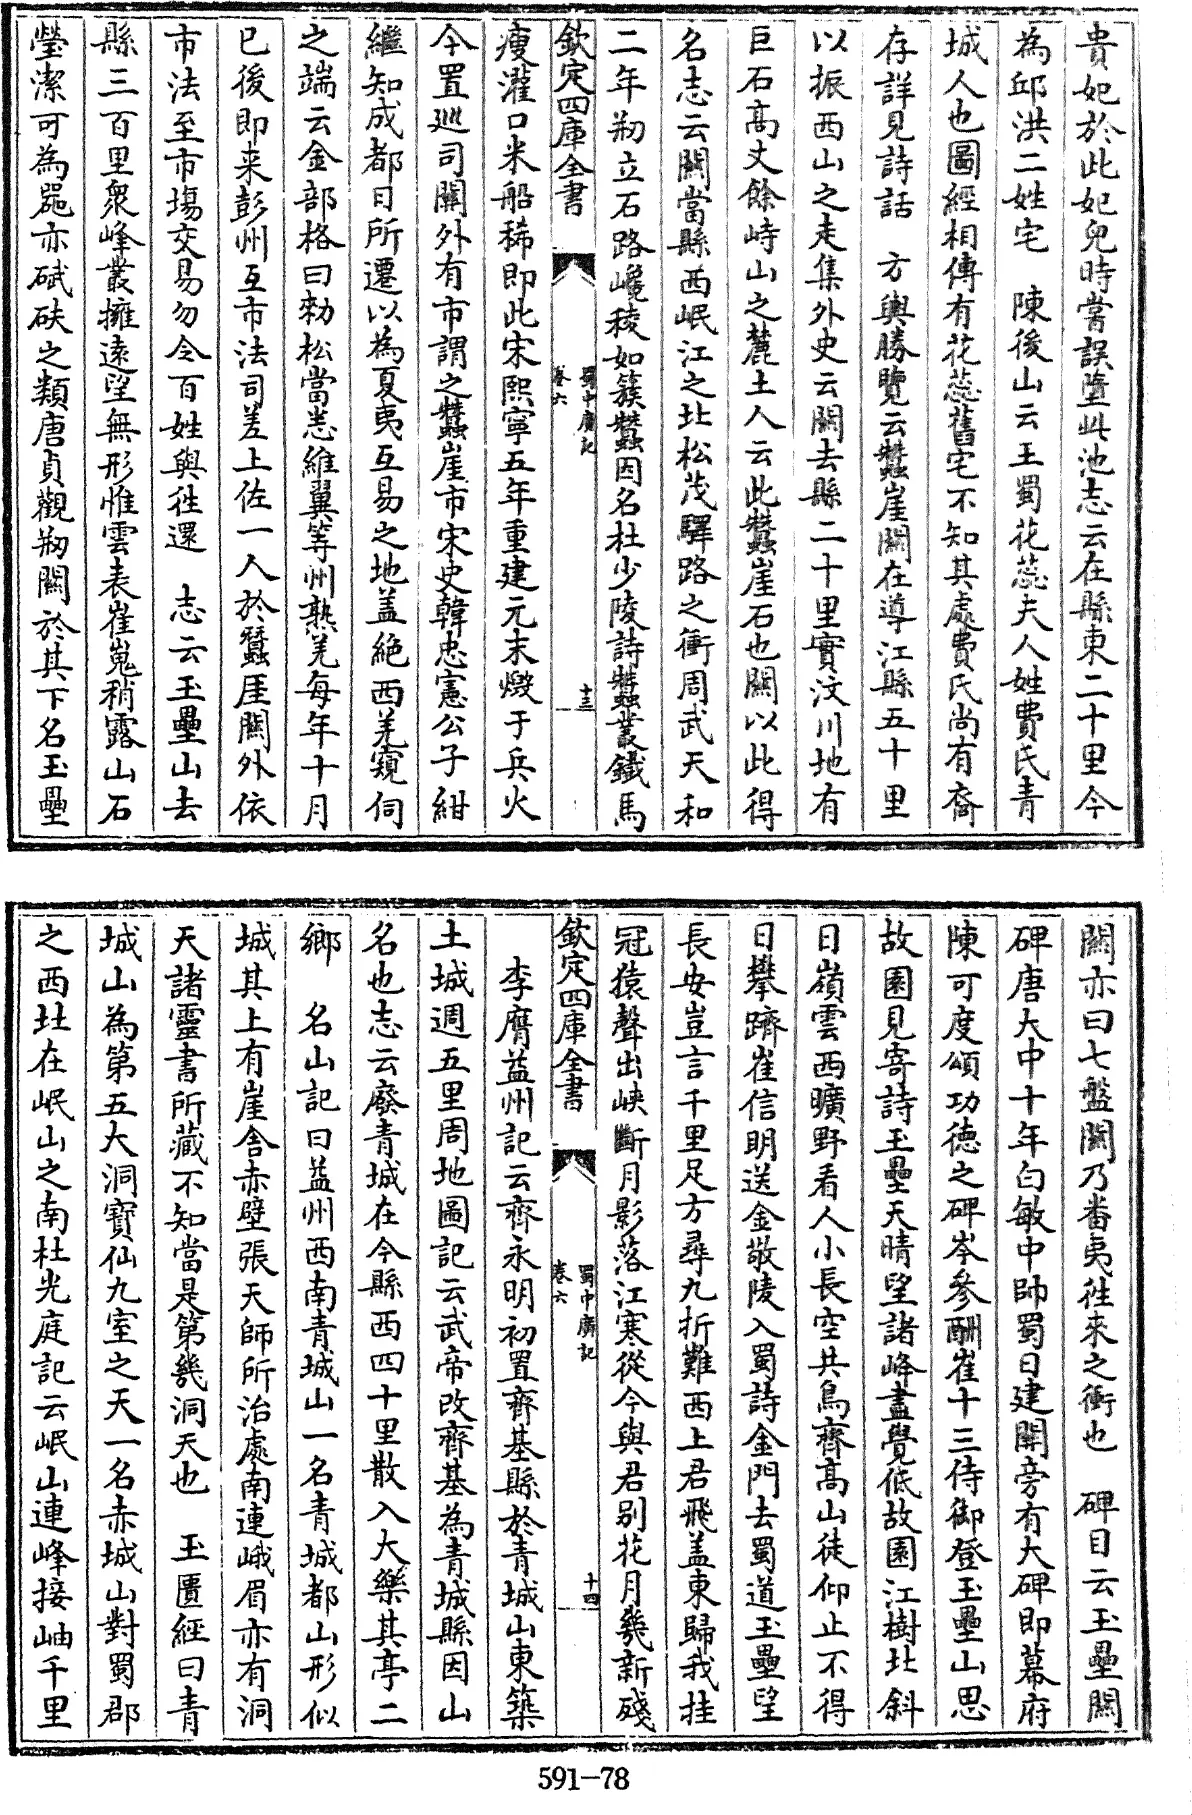 貴妃於此妃兒時嘗誤墮此池志云在縣東二十里今
為邱洪二姓宅　陳後山云王蜀花蕊夫人姓費氏青
城人也圖經相傳有花蕊舊宅不知其處費氏尚有裔
存詳見詩話　方輿勝覽云蠶崖關在導江縣五十里
以振西山之走集外史云關去縣二十里實汶川地有
巨石高丈餘峙山之麓土人云此蠶崖石也關以此得
名志云關當縣西岷江之北松茂驛路之衝周武天和
二年刱立石路巉稜如簇蠶因名杜少陵詩蠶叢鐵馬
欽定四庫全書
蜀中廣記
卷六
十三
瘦灌口米船稀即此宋熙寧五年重建元末燬于兵火
今置巡司關外有市謂之蠶崖市宋史韓忠憲公子紺
繼知成都日所遷以為夏夷互易之地盖絕西羌窺伺
之端云金部格曰勑松當悉維翼等州熟羌每年十月
已後即来彭州互市法司差上佐一人於蠶厓關外依
市法至市場交易勿令百姓與徃還　志云玉壘山去
縣三百里衆峰叢擁遠望無形惟雲表崔嵬稍露山石
瑩潔可為噐亦碔砆之類唐貞觀刱關於其下名玉壘
關亦曰七盤關乃番夷徃来之衝也　碑目云玉壘關
碑唐大中十年白敏中帥蜀日建關旁有大碑即幕府
陳可度頌功德之碑岑參酬崔十三侍御登玉壘山思
故園見寄詩玉壘天晴望諸峰盡覺低故園江樹北斜
日嶺雲西曠野看人小長空共鳥齊高山徒仰止不得
日攀躋崔信明送金敬陵入蜀詩金門去蜀道玉壘望
長安豈言千里足方尋九折難西上君飛盖東歸我挂
冠猿聲出峽斷月影落江寒從今與君别花月幾新殘
欽定四庫全書
蜀中廣記
卷六
十四
李膺益州記云齊永明初置齊基縣於青城山東築
土城週五里周地圖記云武帝改齊基為青城縣因山
名也志云廢青城在今縣西四十里散入大樂其亭二
鄉　名山記曰益州西南青城山一名青城都山形似
城其上有崖舍赤壁張天師所治處南連峨眉亦有洞
天諸靈書所藏不知當是第幾洞天也　玉匱經曰青
城山為第五大洞寶仙九室之天一名赤城山對蜀郡
之西北在岷山之南杜光庭記云岷山連峰接岫千里
591-78